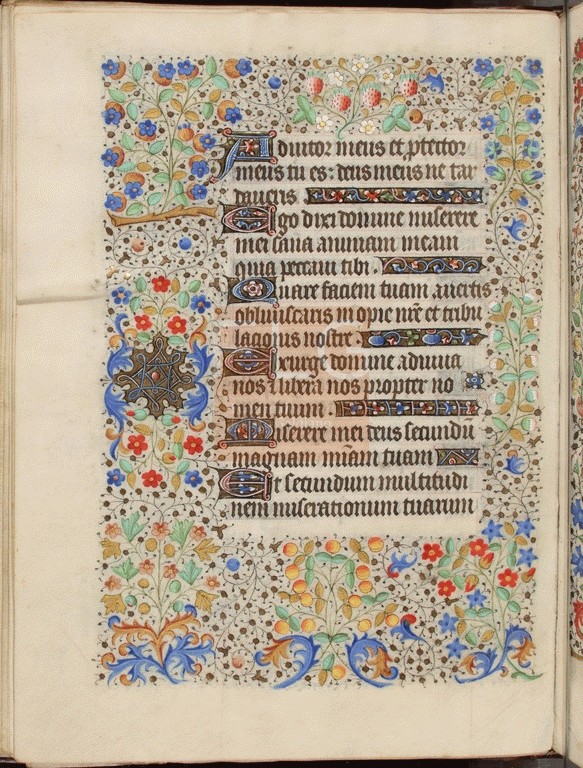 Adiutor meus et ptector
meus tu es: deus meus ne tar
daueris.
Ego dixi domine miserere
mei sana animam meam
quia peccaui tibi.
Quare faciem tuam auertis
obliuisceris inopie nr̄e et tribu
lacionis nostre.
Exurge domine adiuua
nos et libera nos propter no
men tuum.
Miserere mei deus secundū
magnam miam̄ tuam
Et secundum multitudi
nem miserationum tuarum